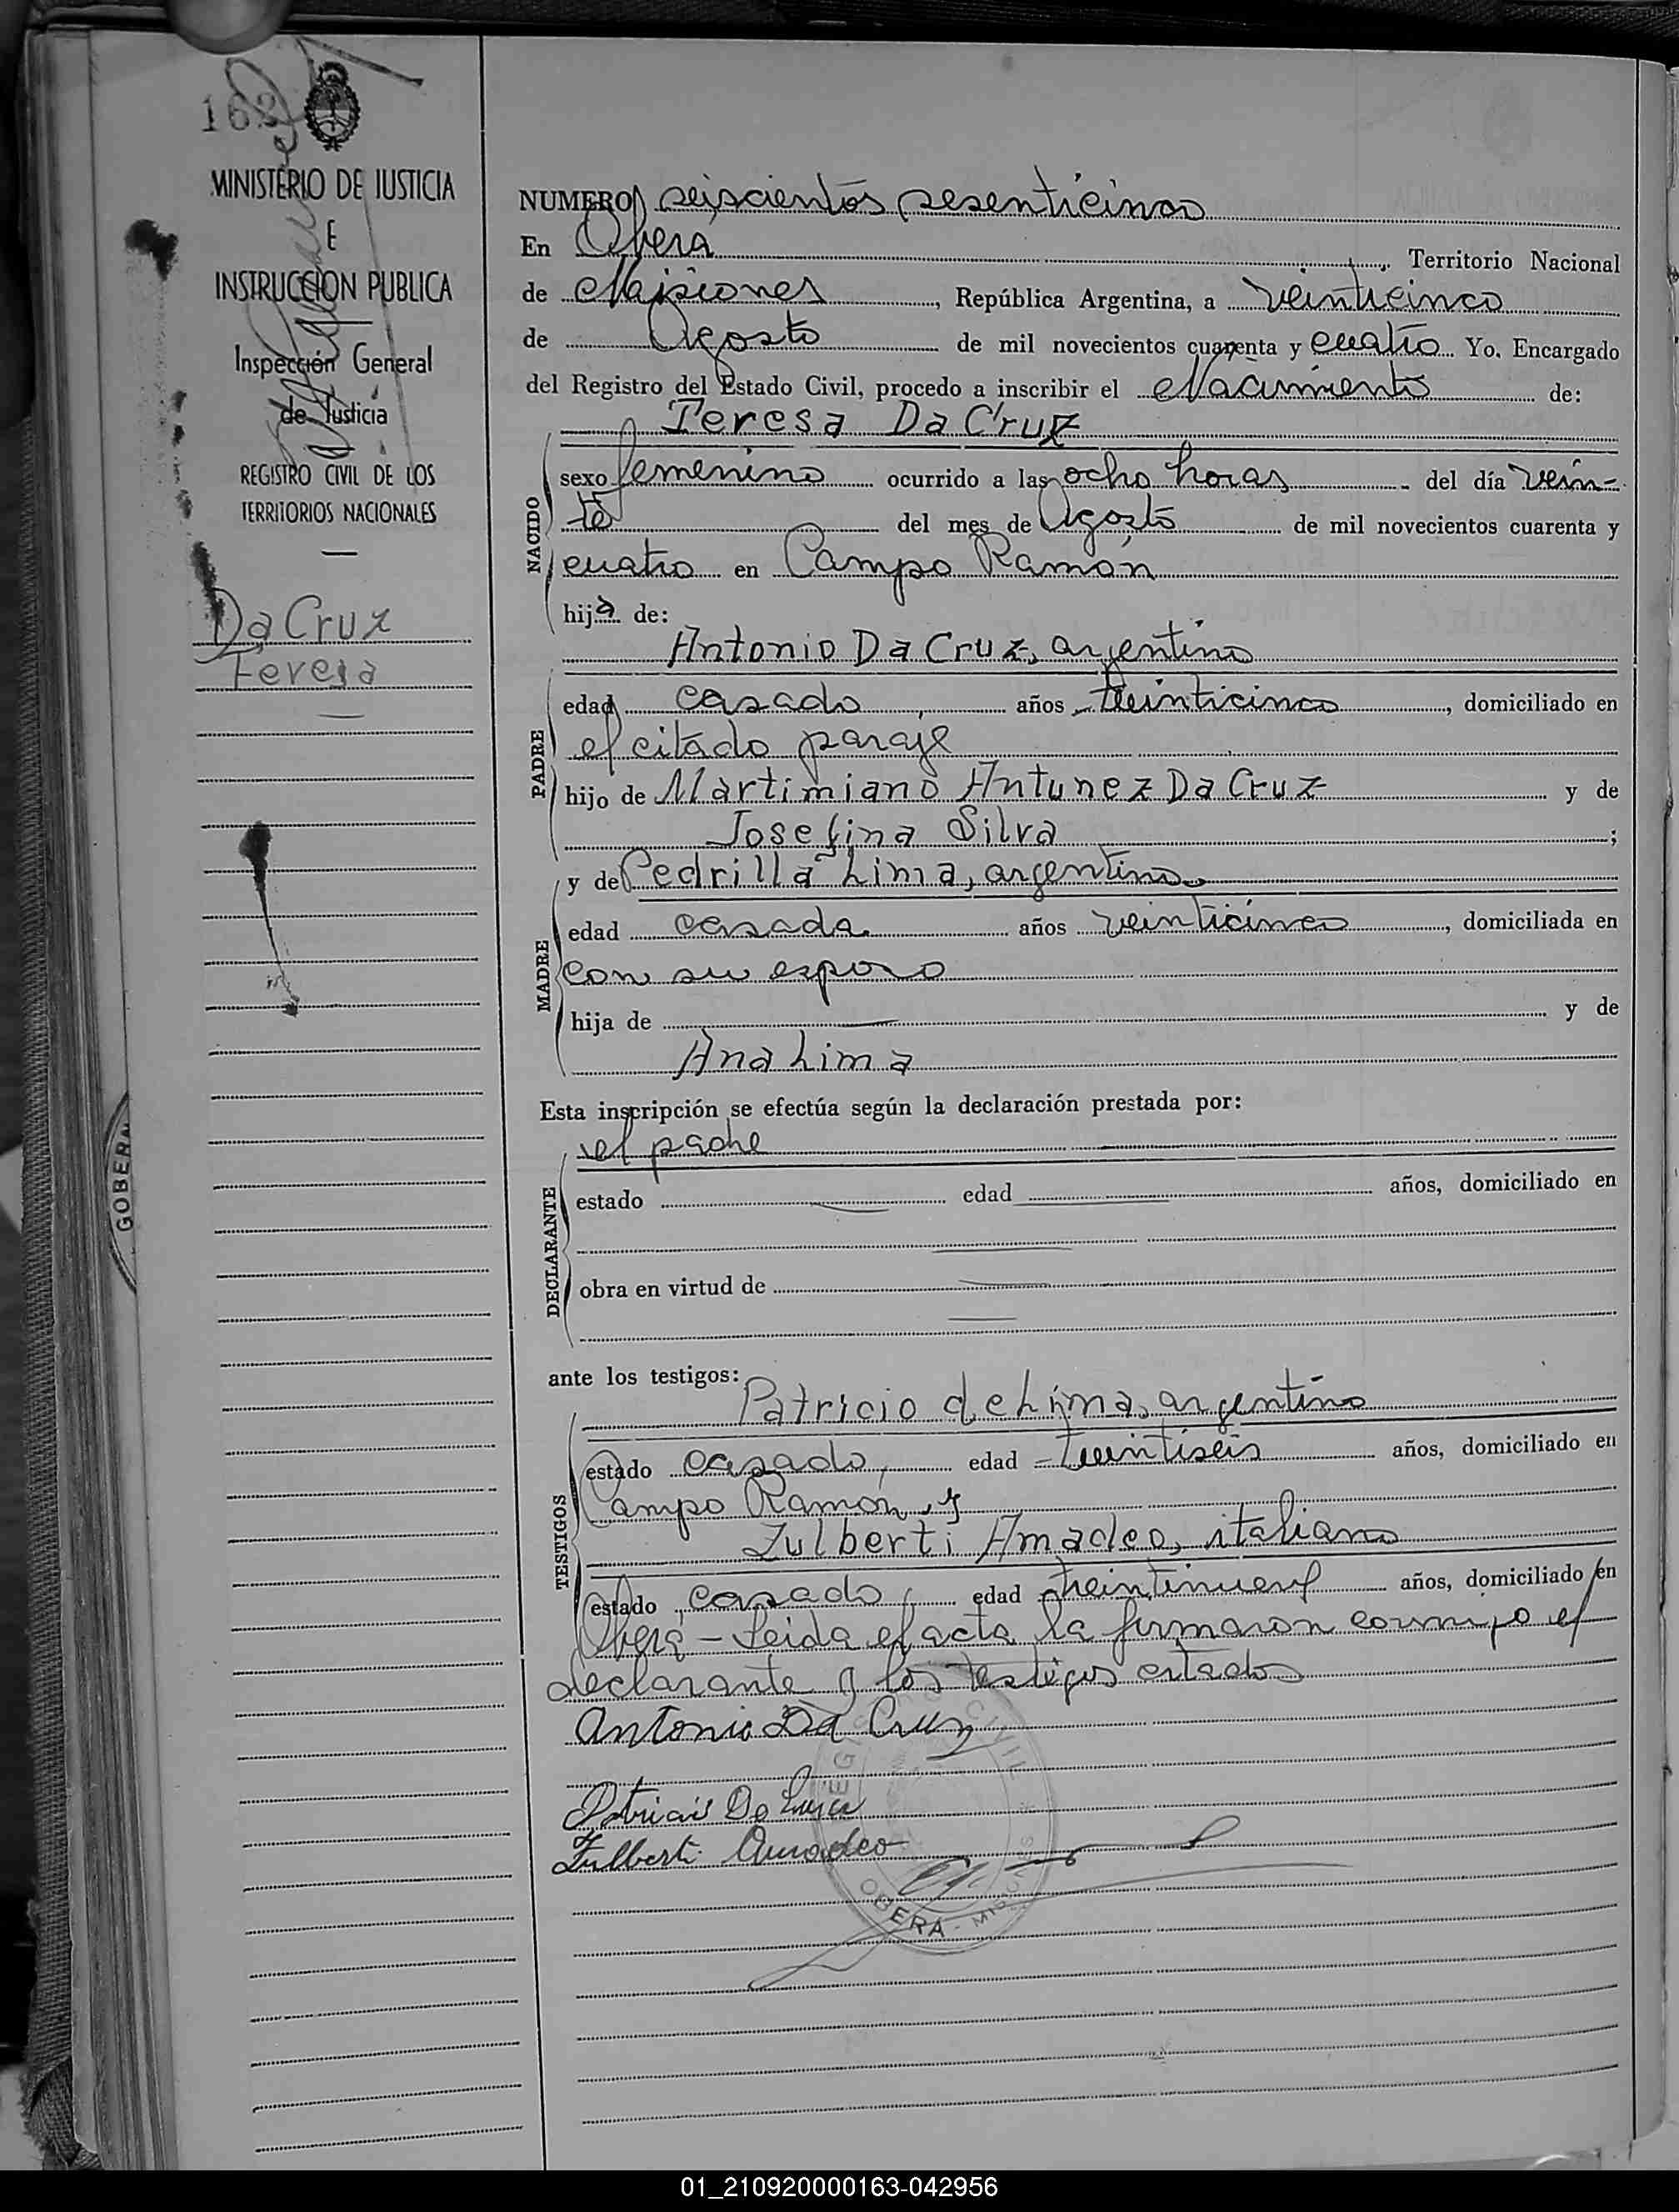 162
MINISTERIO DE JUSTICIA
E
INSTRUCCION PUBLICA
Inspección General
de Justicia
REGISTRO CIVIL DE LOS
TERRITORIOS NACIONALES
Da Cruz
Teresa
GOBERN
NUMERO seiscientos sesenticinco
En Oberá, Territorio Nacional
de Misiones, República Argentina, a veinticinco
de Agosto de mil novecientos cuarenta y cuatro Yo. Encargado
del Registro del Estado Civil, procedo a inscribir el Nacimiento de:
Teresa Da Cruz
NACIDO
sexo femenino ocurrido a las ocho horas del día vein-
te del mes de Agosto de mil novecientos cuarenta y
cuatro en Campo Ramón
hija de:
Antonio Da Cruz, argentino
PADRE
edad casado, años treinticinco, domiciliado en
el citado paraje
hijo de Martimiano Antunez Da Cruz y de
Josefina Silva;
y de Pedrilla Lima, argentina
MADRE
edad casada años veinticinco, domiciliada en
con su esposo
hija de — y de
Ana Lima
Esta inscripción se efectúa según la declaración prestada por:
el padre
DECLARANTE
estado — edad — años, domiciliado en
obra en virtud de —
ante los testigos:
Patricio de Lima, argentino
TESTIGOS
estado casado, edad treintiseis años, domiciliado en
Campo Ramón, y
Zulberti Amadeo, italiano
estado casado, edad treintinueve años, domiciliado en
Oberá - Leida el acta la firmaron conmigo el
declarante y los testigos citados
Antonio Da Cruz
Patricio De Lima
Zulberti Amadeo
CIVIL
OBERA - MISIONES
01_210920000163-042956